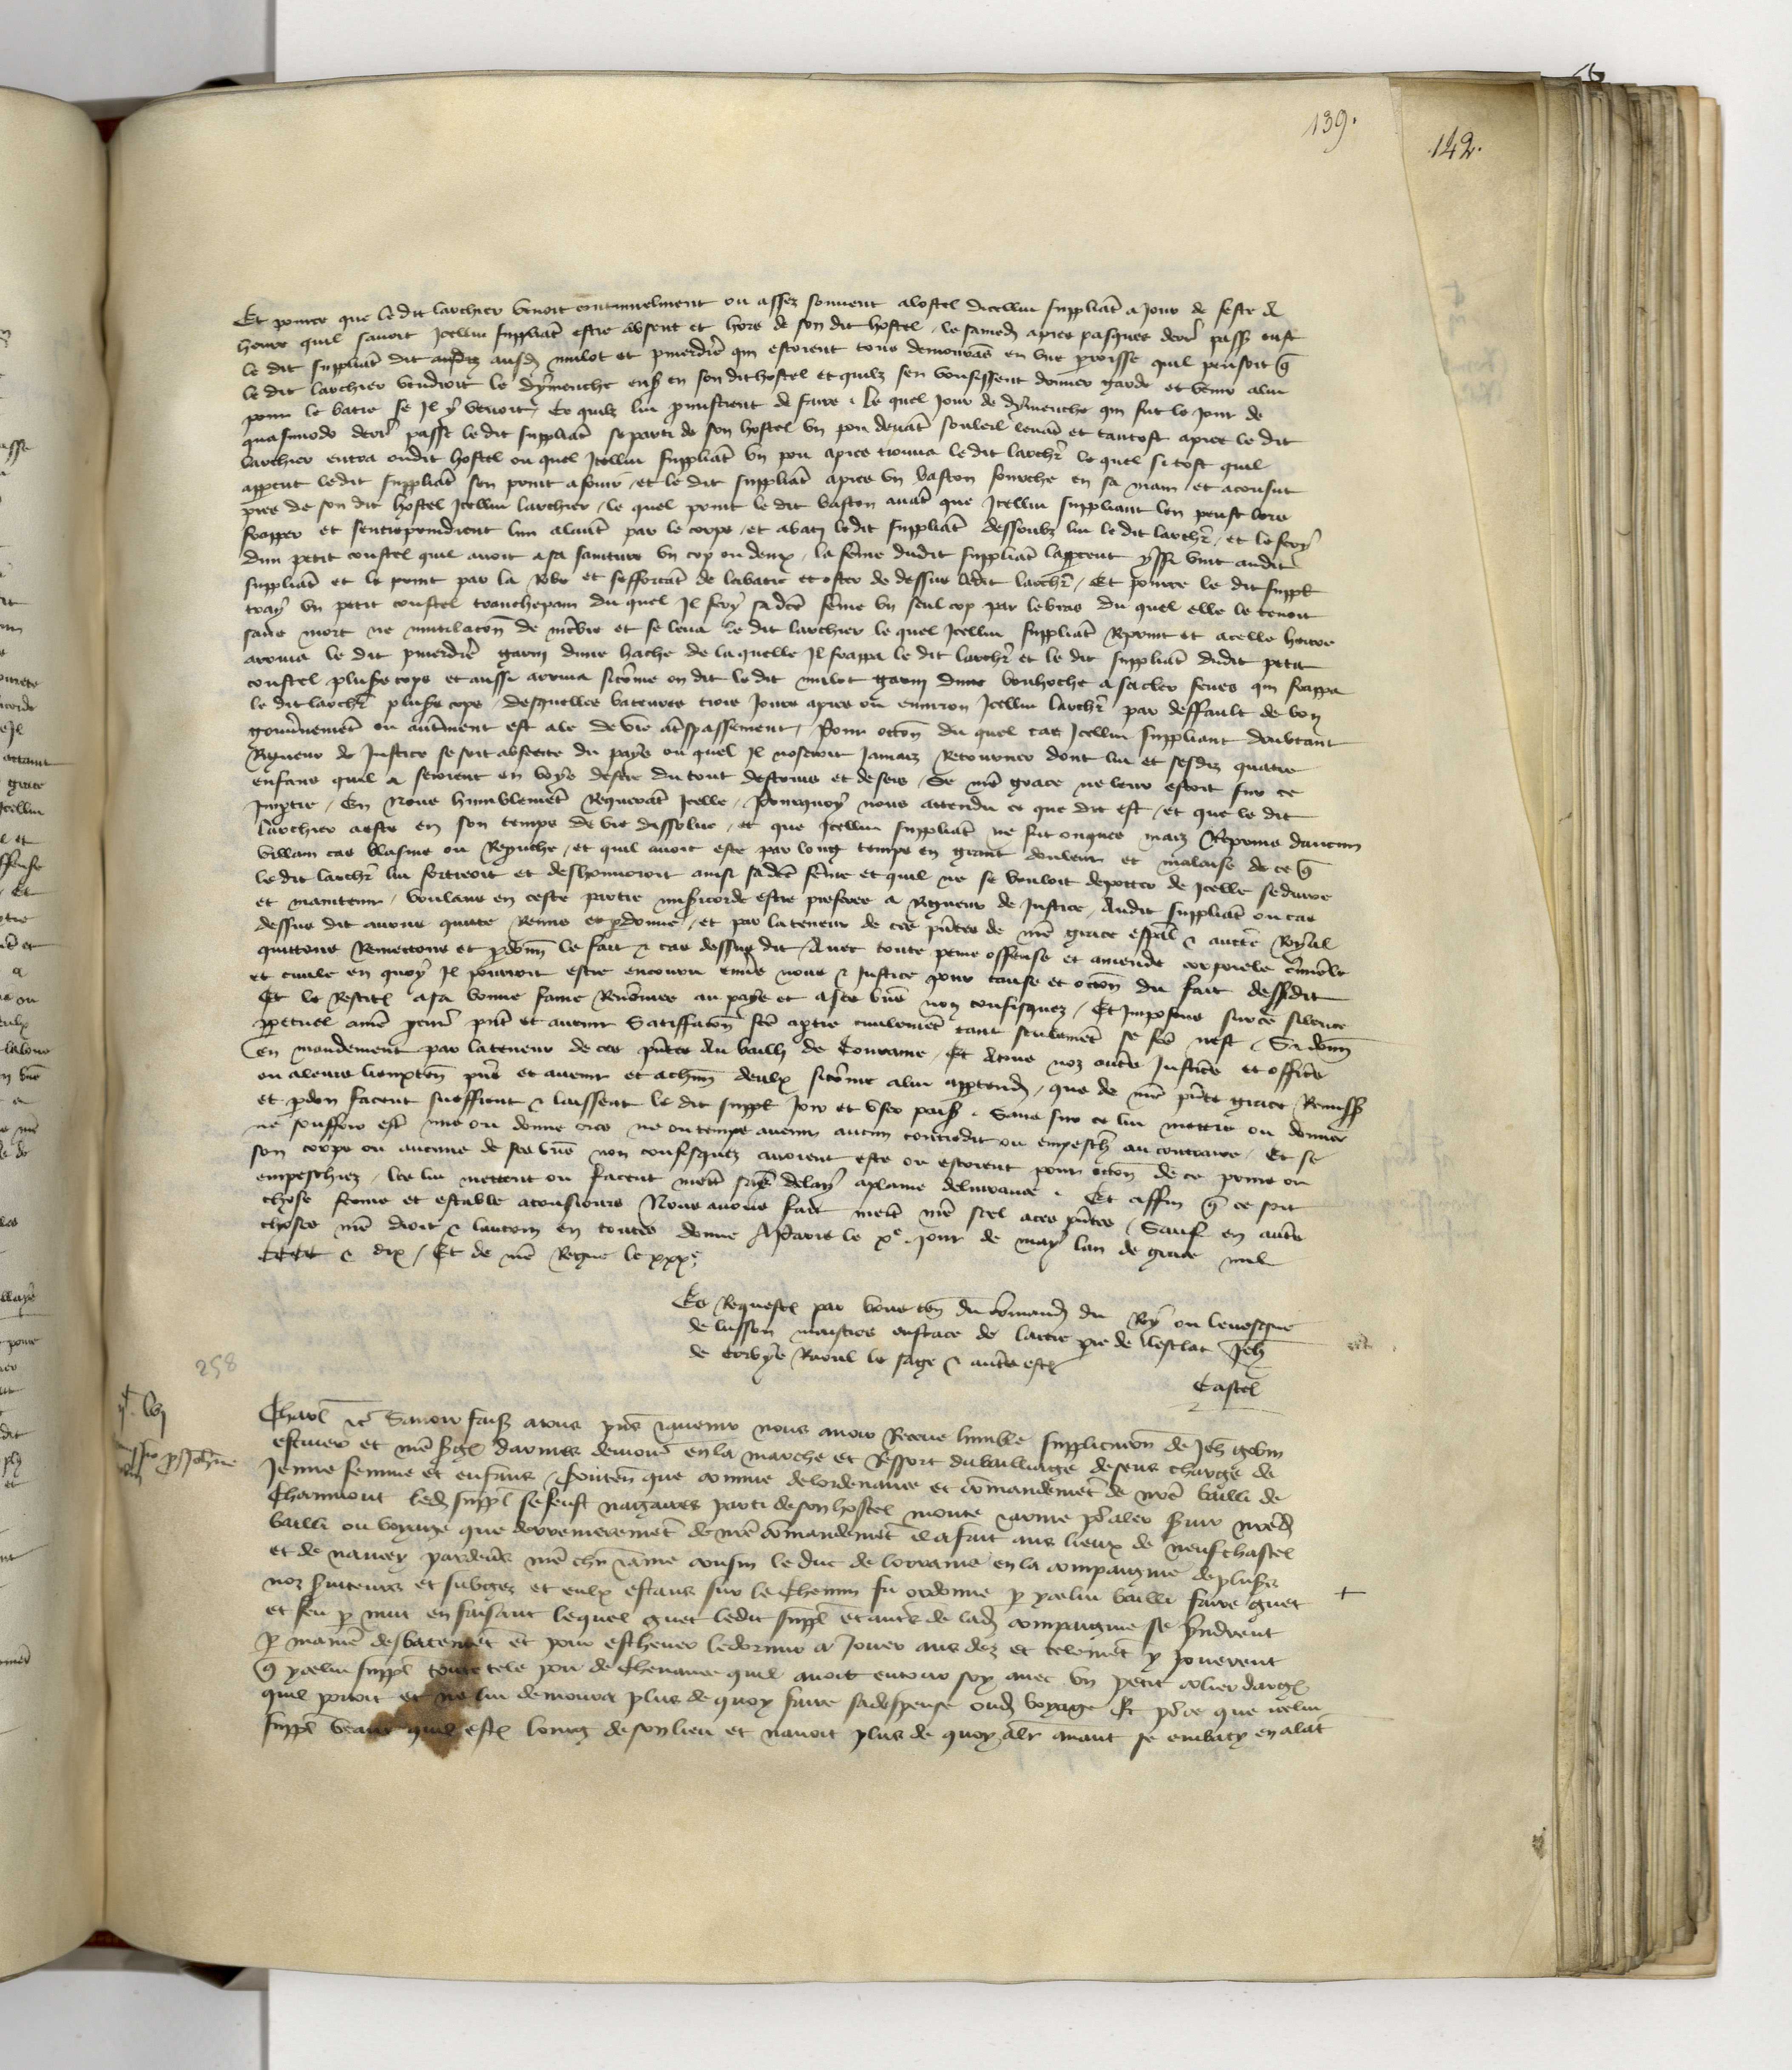 139.
142.
Et pource que ledit larchier venoit continuelment ou assez souvent alostel dicellui suppliāt a jour de feste &
heure quil savoit Icellui suppliāt estre absent et hors de son dit hostel / le samedi apres pasques derr̄ passe eust
le dit suppliāt dit ausd̄ mulot et qui estoient tous demourās en une proisse quil pensoit q̄
le dit larchier vendroit le dymenche ens̄ en son dit hostel et quilz sen vousissent donner garde et venir a lui
pour le batre se Il y venoit / Ce quilz lui promistrent de faire . Le quel jour de dymenche qui fut le jour de
quasimodo derr̄ passe le dit suppliāt se parti de son hostel un pou devāt souleil levāt et tantost apres le dit
larchier entra oudit hostel ou quel Icellui suppliāt un pou apres trouva le dit larch̄r le quel si tost quil
apperceut ledit suppliāt son print a fouir / et le dit suppliāt apres un baston fourche en sa main / et aconsut
pres de son dit hostel Icellui larchier / le quel print le dit baston avāt que Icellui suppliant len peust lors
frapper et sentreprindrent lun alautr̄ par le corps / et abati ledit suppliāt dessoubz lui le dit larch̄r / et le fery
dun petit coustel quil avoit a sa sainture un cop ou deux / la fēme dudit suppliāt lapperceut yssi vint audit
suppliāt et le print par la robe et sefforcāt de labatre et oster de dessus ledit larch̄r / Et pource le dit suppl̄
tray un petit coustel tranchepain du quel Il fery sa dc̄e fēme un seul cop par le bras du quel elle le tenoit
sans mort ne mutilacōn de mēbre et se leva le dit larchier le quel Icellui suppliāt Reprint et a celle heure
arriva le dit garni dune hache de la quelle Il frappa le dit larch̄r et le dit suppliāt dudit petit
coustel plus̄rs cops et aussi arriva sicōme on dit le dit mulot garni dune a sacler feves qui frappa
le dit larch̄r plus̄rs cops / desquelles bateures trois jours apres ou environ Icellui larch̄r par deffault de bon
gouv̄nemēt ou autrement est ale de vie a trespassement / Pour occōn du quel cas Icellui suppliant doubtant
Rigueur de Justice se soit absente du pays ou quel Il noseroit Jamaiz Retourner dont lui et sesdiz quatre
enfans quil a seroient en voye destre du tout destruis et desers / Se nr̄e grace ne leur estoit sur ce
Impartie / En nous humblemēt Requerāt Icelle / Pourquoy nous attendu ce que dit est / et que le dit
larchier a este en son temps de vie dissolue / et que Icellui suppliāt ne fut onques maiz Repris daucun
villain cas blasme ou Reprouche / et quil avoit este par long temps en grant douleur et malaise de ce q̄
le dit larch̄r lui fortreoit et deshonnoroit ainsi sadc̄e fēme et quil ne se vouloit deporter de Icelle seduire
et maintenir / voulans en ceste partie misericorde estre preferee a Rigueur de Justice / Audit suppliāt ou cas
dessus dit avons quitte Remis et pardonne / et par la teneur de ces p̄ntes de nr̄e grace esp̄al & auctē Royal
quittons Remettons et p̄donn̄ le fait & cas dessus dit / Avec toute peine offense et amende corporele cr̄imele
et civile en quoy Il pourroit estre encouru env̄s nous & Justice pour cause et occōn du fait dessusdit
Et le Restitut̄ a sa bonne fame Renōmee au pays et a ses biēs non confisquez / Et Imposons sur ce silence
p̄petuel a nr̄e procur̄ p̄nt et avenir Satiffacōn fc̄e a p̄tie civilemēt tant seulemēt se fc̄e nest / Si donn̄
en mandement par la teneur de ces p̄ntes Au bailli de Touraine / Et A tous noz autr̄s Justic̄rs et offic̄rs
ou a leurs lieuxten̄ p̄ns et avenir et a ch̄un deulx sicōme a lui appartend̄ / que de nr̄e p̄nte grace / Remiss̄
et p̄don facent sueffrent & laissent le dit suppl̄ Joir et user paisib̄ . Sans sur ce lui mettre ou donner
ne souffrir estr̄ mis ou donne ores ne ou temps avenir aucun contredit ou empesch̄ au contraire / Et se
son corps ou aucuns de ses biēs non confisquez avoient este ou estoient pour occōn de ce prins ou
empeschiez / les lui mettent ou facent mettr̄ sans delay a plaine delivrance . Et affin q̄ ce soit
chose ferme et estable a tousjours Nous avons fait mettr̄ nr̄e seel a ces p̄ntes / Sauf en autr̄s
choses nr̄e droit & lautrui en toutes donne A Paris le xe Jour de may lan de grace mil
CCCC & dix / Et de nr̄e Regne le xxxe
Es Requestes par vous ten̄ du cōmand̄ du Roy ou levesque
de lusson maistres eustace de laitre p̄re de lesclat Jeh̄
de Corbye Raoul le sage & autr̄s estoī
Castel
258
Charl̄ &c̄ Savoir fais̄ a tous p̄ns & avenir nous avoir Receue lumble supplicacōn de Jeh̄ gobin
escuier et nr̄e s̄gēt darmes demour̄ en la marche et Ressort du bailliage de sens charge de
Jenne femme et enfans / Conten̄ que comme de lordenance et cōmandemēt de nr̄e bailli de
Chaumont led̄ suppl̄ se feust nagaires parti de son hostel monte & arme p̄r aler servir nr̄ed̄
bailli ou voyage que derrenierement de nr̄e cōmandement il a fait aus lieux de neufchastel
et de nancey par devers nr̄e ch̄r & ame cousin le duc de lorraine en la compaignie de plus̄rs
noz s̄viteurs et subgez et eulx estans sur le chemin fu ordonne p̄ ycelui bailli faire guet
et feu p̄ nuit en faisant lequel guet ledit suppl̄ et autr̄s de lad̄ compaignie se prindrent
p̄ maniē desbatemēt et pour eschever le dormir a Jouer aus dez et telemēt y Jouerent
q̄ ycelui suppl̄ tele pou de chevance quil avoit entour soy avec un petit colier dargē
quil portoit et ne lui demoura plus de quoy faire sa despense oud̄ voyage Et p̄r ce que icelui
suppl̄ veant quil est̄ loing de son lieu et navoit plus de quoy al̄r avant se embaty en alāt